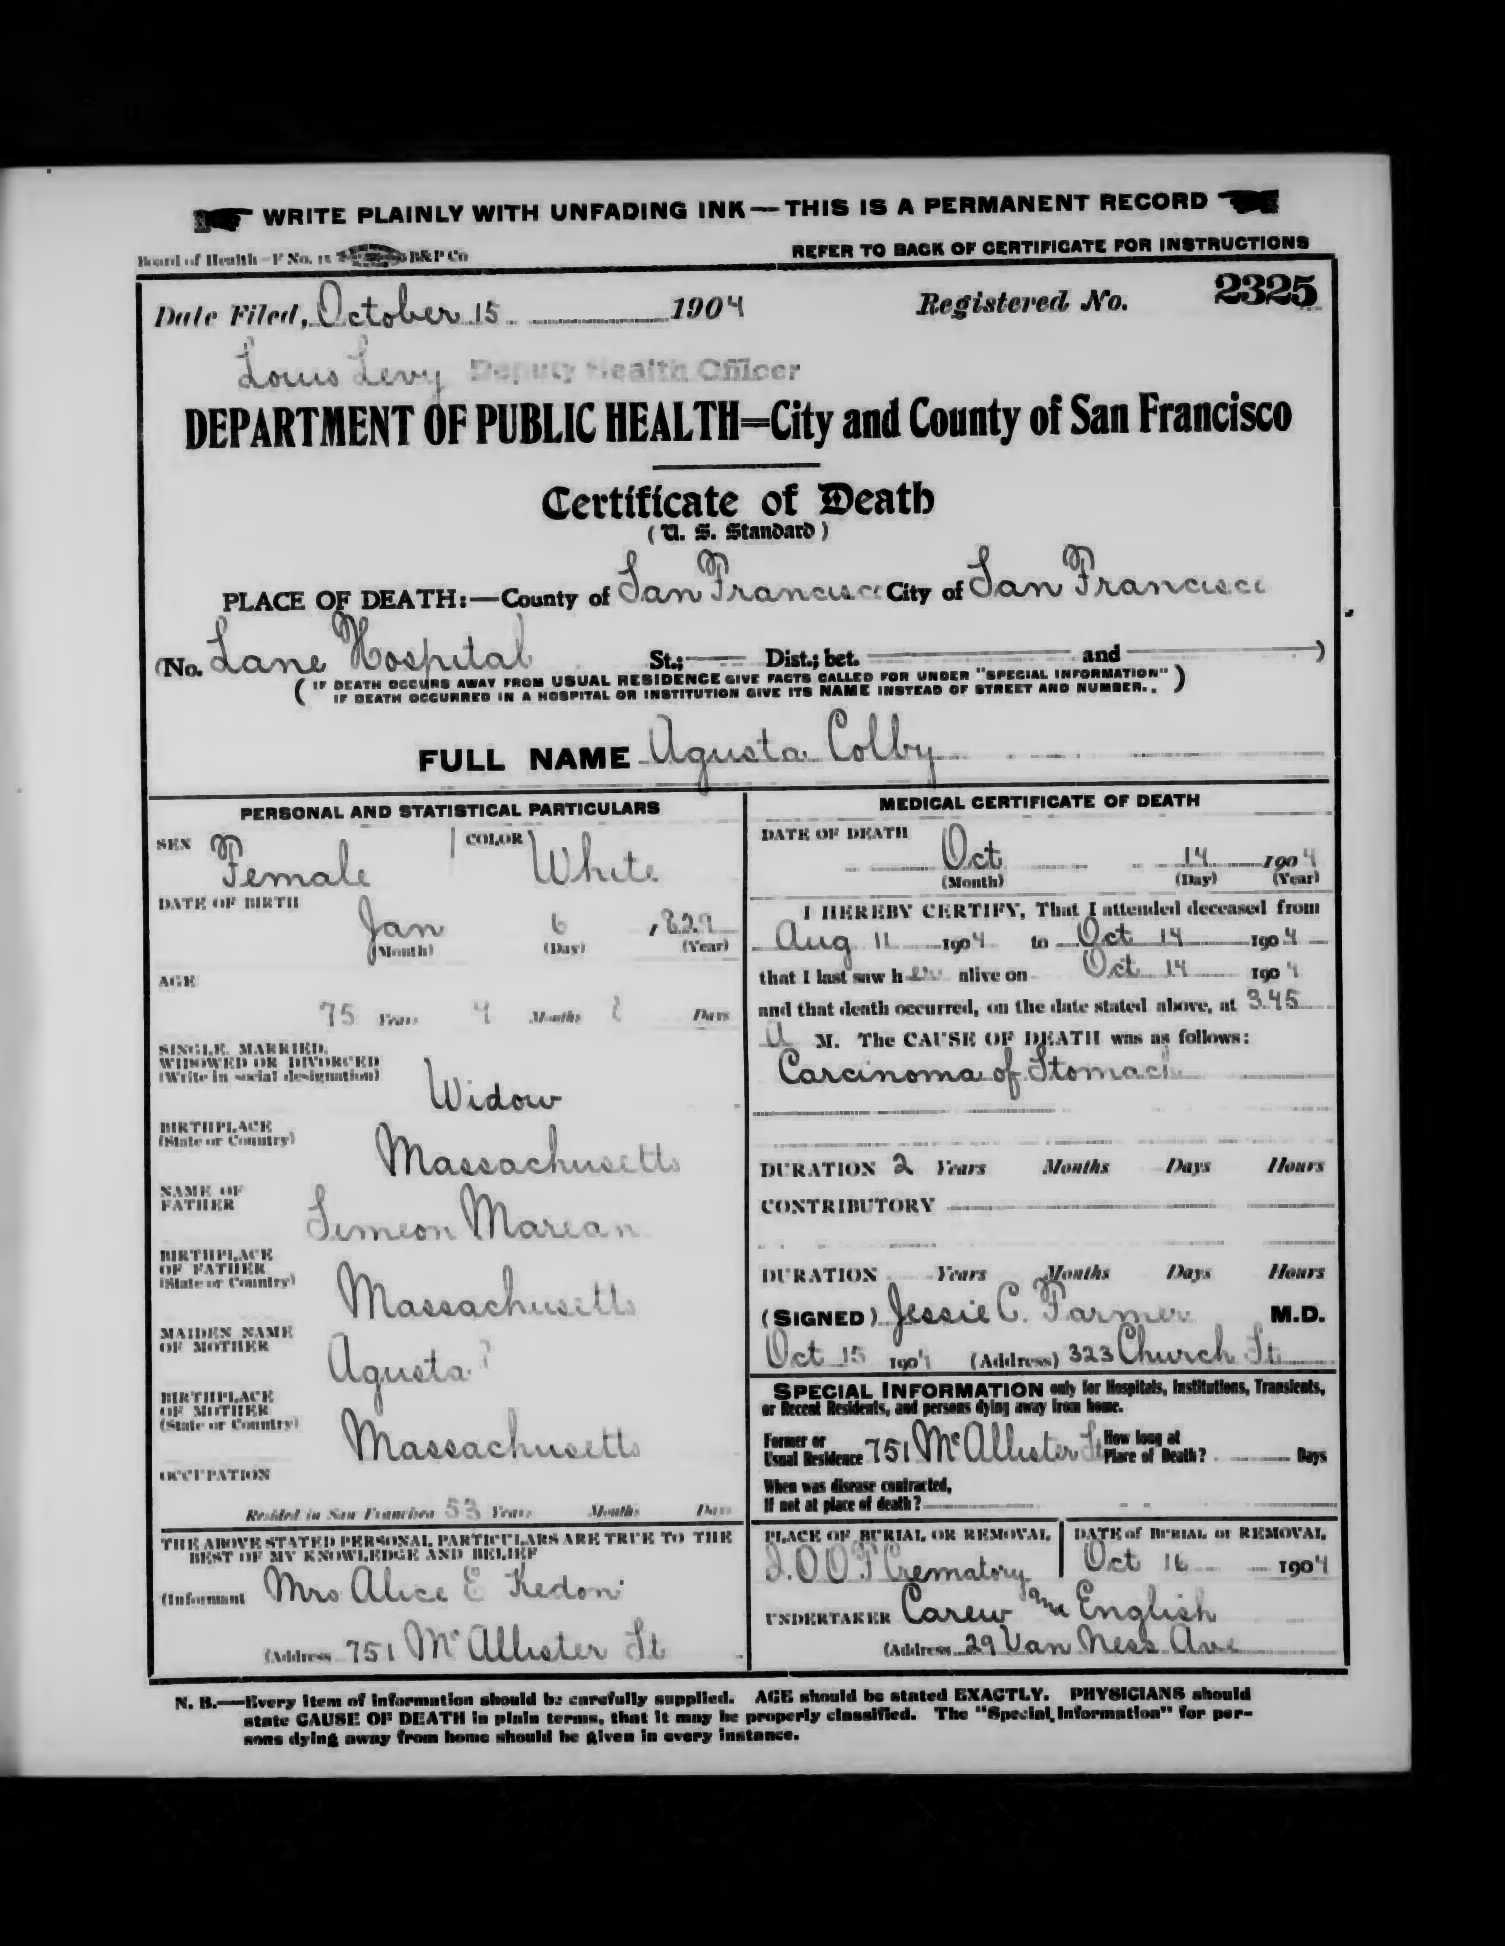 WRITE PLAINLY WITH UNFADING INK—THIS IS A PERMANENT RECORD
Board of Health—F No. 15 B&P Co
REFER TO BACK OF CERTIFICATE FOR INSTRUCTIONS
Date Filed, October 15 1904 Registered No. 2325
Louis Levy Deputy Health Officer
DEPARTMENT OF PUBLIC HEALTH=City and County of San Francisco
Certificate of Death
(U. S. Standard)
PLACE OF DEATH:—County of San Francisco City of San Francisco
(No. Lane Hospital St.; Dist.; bet. and )
(IF DEATH OCCURS AWAY FROM USUAL RESIDENCE GIVE FACTS CALLED FOR UNDER "SPECIAL INFORMATION"
IF DEATH OCCURRED IN A HOSPITAL OR INSTITUTION GIVE ITS NAME INSTEAD OF STREET AND NUMBER.)
FULL NAME Agusta Colby
PERSONAL AND STATISTICAL PARTICULARS
SEX Female COLOR White
DATE OF BIRTH
Jan 6 , 829
(Month) (Day) (Year)
AGE
75 Years 4 Months 8 Days
SINGLE, MARRIED,
WIDOWED OR DIVORCED
(Write in social designation)
Widow
BIRTHPLACE
(State or Country)
Massachusetts
NAME OF
FATHER
Simeon Marean
BIRTHPLACE
OF FATHER
(State or Country)
Massachusetts
MAIDEN NAME
OF MOTHER
Agusta ?
BIRTHPLACE
OF MOTHER
(State or Country)
Massachusetts
OCCUPATION
Resided in San Francisco 53 Years Months Days
THE ABOVE STATED PERSONAL PARTICULARS ARE TRUE TO THE
BEST OF MY KNOWLEDGE AND BELIEF
(Informant Mrs Alice E Kedon
(Address 751 McAllister St
MEDICAL CERTIFICATE OF DEATH
DATE OF DEATH
Oct 14 1904
(Month) (Day) (Year)
I HEREBY CERTIFY, That I attended deceased from
Aug 11 1904 to Oct 14 1904
that I last saw her alive on Oct 14 1904
and that death occurred, on the date stated above, at 3.45
A M. The CAUSE OF DEATH was as follows:
Carcinoma of Stomach
DURATION 2 Years Months Days Hours
CONTRIBUTORY
DURATION Years Months Days Hours
(SIGNED) Jessie C. Farmer M.D.
Oct 15 1904 (Address) 323 Church St
SPECIAL INFORMATION only for Hospitals, Institutions, Transients,
or Recent Residents, and persons dying away from home.
Former or
Usual Residence 751 McAllister St How long at
Place of Death? Days
When was disease contracted,
If not at place of death?
PLACE OF BURIAL OR REMOVAL
I.O.O.F Crematory
DATE of BURIAL or REMOVAL
Oct 16 1904
UNDERTAKER Carew and English
(Address 29 Van Ness Ave
N. B.—Every item of information should be carefully supplied. AGE should be stated EXACTLY. PHYSICIANS should
state CAUSE OF DEATH in plain terms, that it may be properly classified. The "Special Information" for per-
sons dying away from home should be given in every instance.